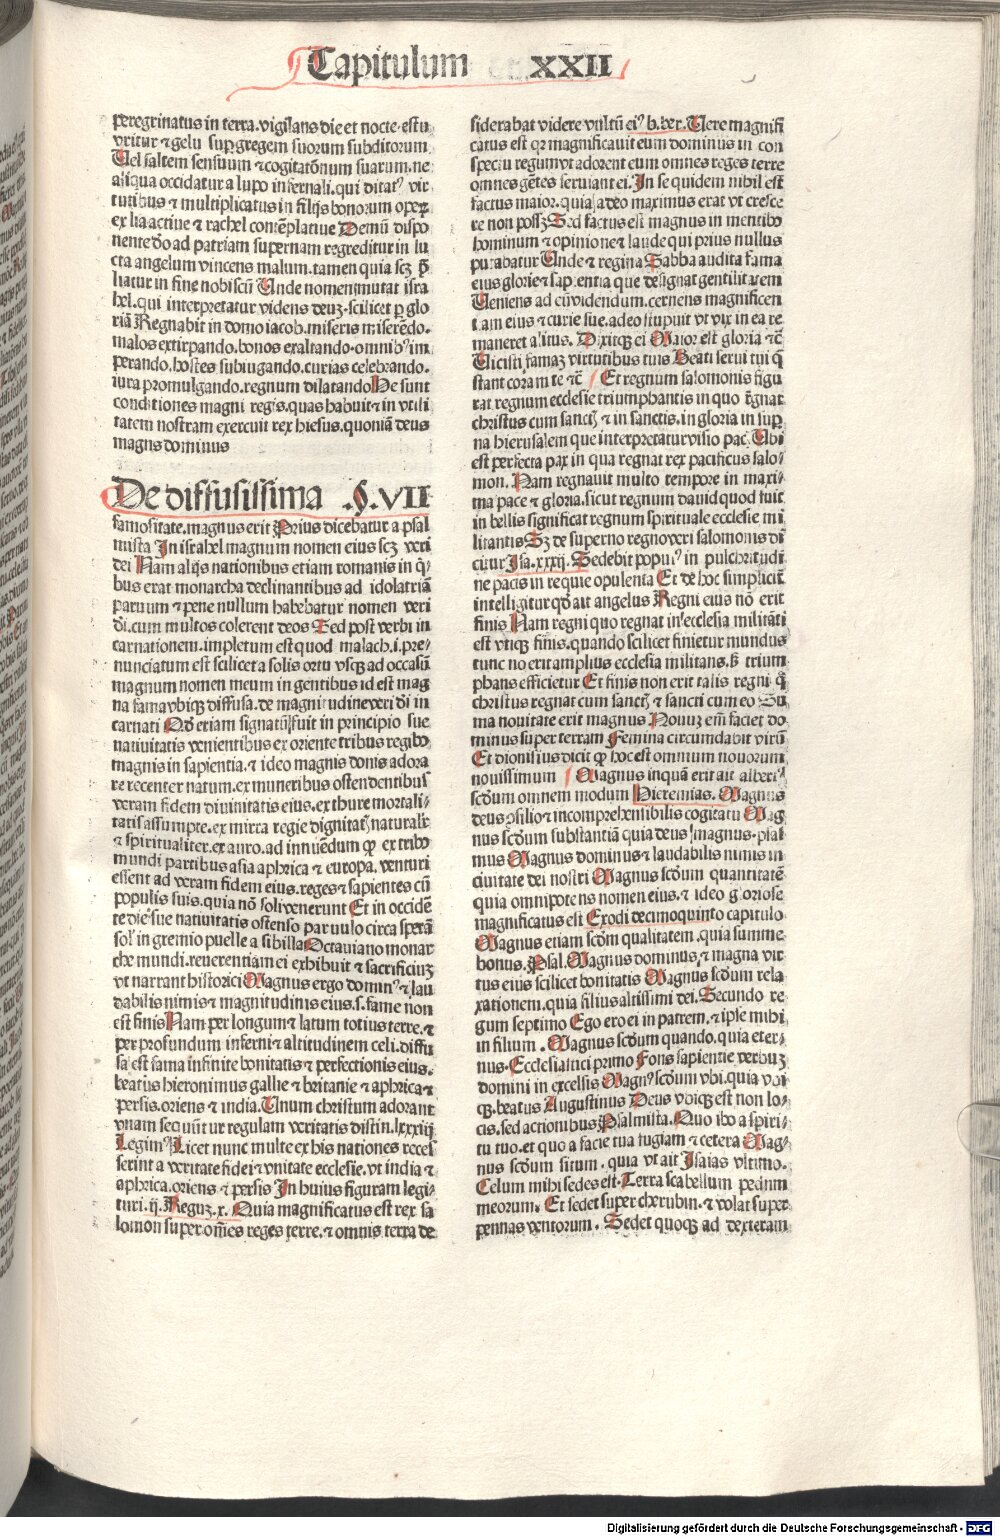 Capitulum XXII
peregrinatus in terra. vigilans die et nocte. estu
vritur ⁊ gelu sup gregem suorum subditorum
Uel saltem sensuum ⁊ cogitatōnum suarum. ne
aliqua occidatur a lupo infernali. qui ditatꝰ vir
tutibus ⁊ multiplicatus in filijs bonorum oꝑe
ex lia actiue ⁊ rachel contēplatiue Demū dispo
nente dō ad patriam supernam regreditur in lu
cta angelum vincens malum. tamen quia scꝫ p̄
liatur in fine nobiscū Unde nomen mutat isra
hel. qui interpretatur videns deuꝫ. scilicet ꝑ glo
riā Regnabit in domo iacob. miseris miserēdo.
malos extirpando. bonos exaltando. omnibꝰ im
perando. hostes subiugando. curias celebrando.
iura promulgando. regnum dilatando He sunt
conditiones magni regis. quas habuit ⁊ in vtili
tatem nostram exercuit rex hiesus. quoniā deus
magnꝰ dominus
De diffusissima .§. VII
famositate. magnus erit Prius dicebatur a psal
mista In israhel magnum nomen eius scꝫ veri
dei Nam alijs nationibus etiam romanis in q̄
bus erat monarcha declinantibus ad idolatriā
paruum ⁊ pene nullum habebatur nomen veri
dī. cum multos colerent deos Sed post verbi in
carnationem. impletum est quod malach. i. pre/
nunciatum est scilicet a solis ortu vsqꝫ ad occasū
magnum nomen meum in gentibus id est mag
na fama vbiqꝫ diffusa. de magnitudine veri dī in
carnati Qd̄ etiam signatū fuit in principio sue
natiuitatis venientibus ex oriente tribus regibꝰ
magnis in sapientia. ⁊ ideo magnis donis adora
re recenter natum. ex muneribus ostendentibus
veram fidem diuinitatis eius. ex thure mortali/
tatis assumpte. ex mirra regie dignitatꝭ naturalir̄
⁊ spiritualiter. ex auro. ad innuēdum ꝙ ex tribꝰ
mundi partibus asia aphrica ⁊ europa. venturi
essent ad veram fidem eius. reges ⁊ sapientes cū
populis suis. quia nō soli venerunt Et in occidē
te die sue natiuitatis ostenso paruulo circa sperā
solꝭ in gremio puelle a sibilla Octauiano monar
che mundi. reuerentiam ei exhibuit ⁊ sacrificiuꝫ
vt narrant historici Magnus ergo dominꝰ ⁊ lau
dabilis nimis ⁊ magnitudinis eius. s. fame non
est finis Nam per longum ⁊ latum totius terre. ⁊
per profundum inferni ⁊ altitudinem celi. diffu
sa est fama infinite bonitatis ⁊ perfectionis eius.
beatus hieronimus gallie ⁊ britanie ⁊ aphrica ⁊
persis. oriens ⁊ india. Unum christum adorant
vnam sequūtur regulam veritatis distin. lxxxiij
Legimꝰ Licet nunc multe ex his nationes reces
serint a veritate fidei ⁊ vnitate ecclesie. vt india ⁊
aphrica. oriens ⁊ persis In huius figuram legi/
tur. ij. Reguꝫ. x. Quia magnificatus est rex sa
lomon super om̄es reges terre. ⁊ omnis terra de
siderabat videre vultū eiꝰ b. ber. Uere magnifi
catus est qꝛ magnificauit eum dominus in con
spectu regum vt adorent eum omnes reges terre
omnes gētes seruiant ei. In se quidem nihil est
factus maior. quia adeo maximus erat vt cresce
re non possꝫ Sed factus est magnus in mentibꝰ
hominum ⁊ opinione ⁊ laude qui prius nullus
putabatur Unde ⁊ regina Sabba audita fama
eius glorie ⁊ sapientia que designat gentilitatem
Ueniens ad eū videndum. cernens magnificen
tiam eius ⁊ curie sue. adeo stupuit vt vix in ea re
maneret alitus. Dixitqꝫ ei Maior est gloria ⁊c̄
Uicisti famaꝫ virtutibus tuis Beati serui tui q̄
stant coram te ⁊c̄ Et regnum salomonis figu
rat regnum ecclesie triumphantis in quo regnat
christus cum sanctꝭ ⁊ in sanctis. in gloria in suꝑ
na hierusalem que interpretatur visio pacꝭ. Ubi
est perfecta pax in qua regnat rex pacificus salo/
mon. Nam regnauit multo tempore in maxi/
ma pace ⁊ gloria. sicut regnum dauid quod fuit
in bellis significat regnum spirituale ecclesie mi
litantis Sꝫ de superno regno veri salomonis di
citur Isa. xxxij. Sedebit populꝰ in pulchritudi
ne pacis in requie opulenta Et de hoc simplicit̄
intelligitur qd̄ ait angelus Regni eius nō erit
finis Nam regni quo regnat in ecclesia militāti
est vtiqꝫ finis. quando scilicet finietur mundus
tunc no erit amplius ecclesia militans. sꝫ trium
phans efficietur Et finis non erit talis regni q̄
christus regnat cum sanctꝭ ⁊ sancti cum eo Su
ma nouitate erit magnus Nouuꝫ em̄ faciet do
minus super terram Femina circumdabit virū
Et dionisius dicit ꝙ hoc est omnium nouorum
nouissimum Magnus inquā erit ait albertꝰ
scd̄um omnem modum Hieremias. Magnus
deus ꝯsilio ⁊ incomprehensibilis cogitatu Mag
nus scd̄um substantiā quia deus magnus. psal
mus Magnus dominus ⁊ laudabilis nimis in
ciuitate dei nostri Magnus scd̄um quantitatē
quia omnipotens nomen eius. ⁊ ideo gloriose
magnificatus est Exodi decimoquinto capitulo
Magnus etiam scd̄m qualitatem. quia summe
bonus. Psal. Magnus dominus. ⁊ magna vir
tus eius scilicet bonitatis Magnus scd̄um rela
xationem. quia filius altissimi dei. Secundo re
gum septimo Ego ero ei in patrem. ⁊ ipse mihi
in filium. Magnus scd̄um quando. quia eter/
nus. Ecclesiastici primo Fons sapientie verbuꝫ
domini in excelsis Magnꝰ scd̄um vbi. quia vbi
qꝫ. beatus Augustinus Deus vbiqꝫ est non lo/
cis. sed actionibus Psalmista. Quo ibo a spiri/
tu tuo. et quo a facie tua fugiam ⁊ cetera Mag/
nus scd̄um situm. quia vt ait Isaias vltimo.
Celum mihi sedes est. Terra scabellum pedum
meorum. Et sedet super cherubin. ⁊ volat super
pennas ventorum. Sedet quoqꝫ ad dexteram
Digitalisierung gefördert durch die Deutsche Forschungsgemeinschaft - DFG